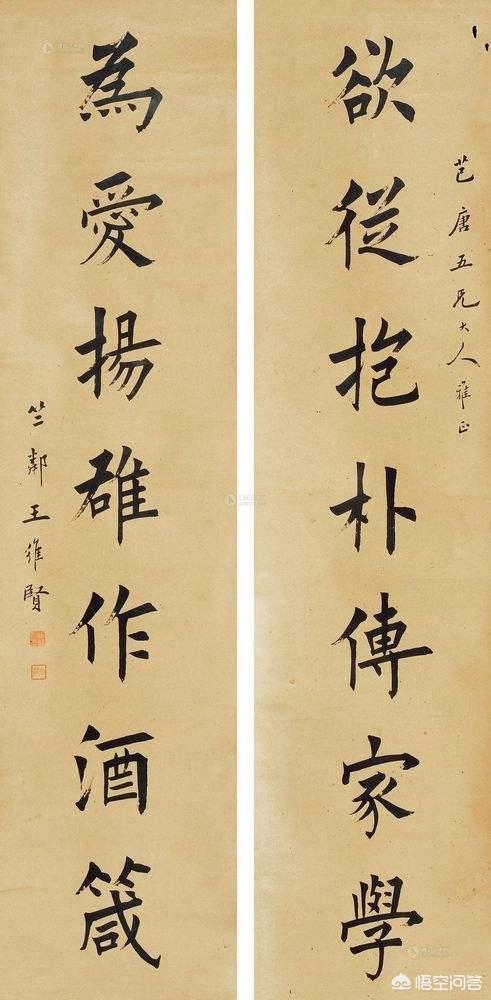 欲從抱朴傳家學
芑唐五兄大人雅正
為愛揚雄作酒箴
竺鄰王維賢
悟空问答